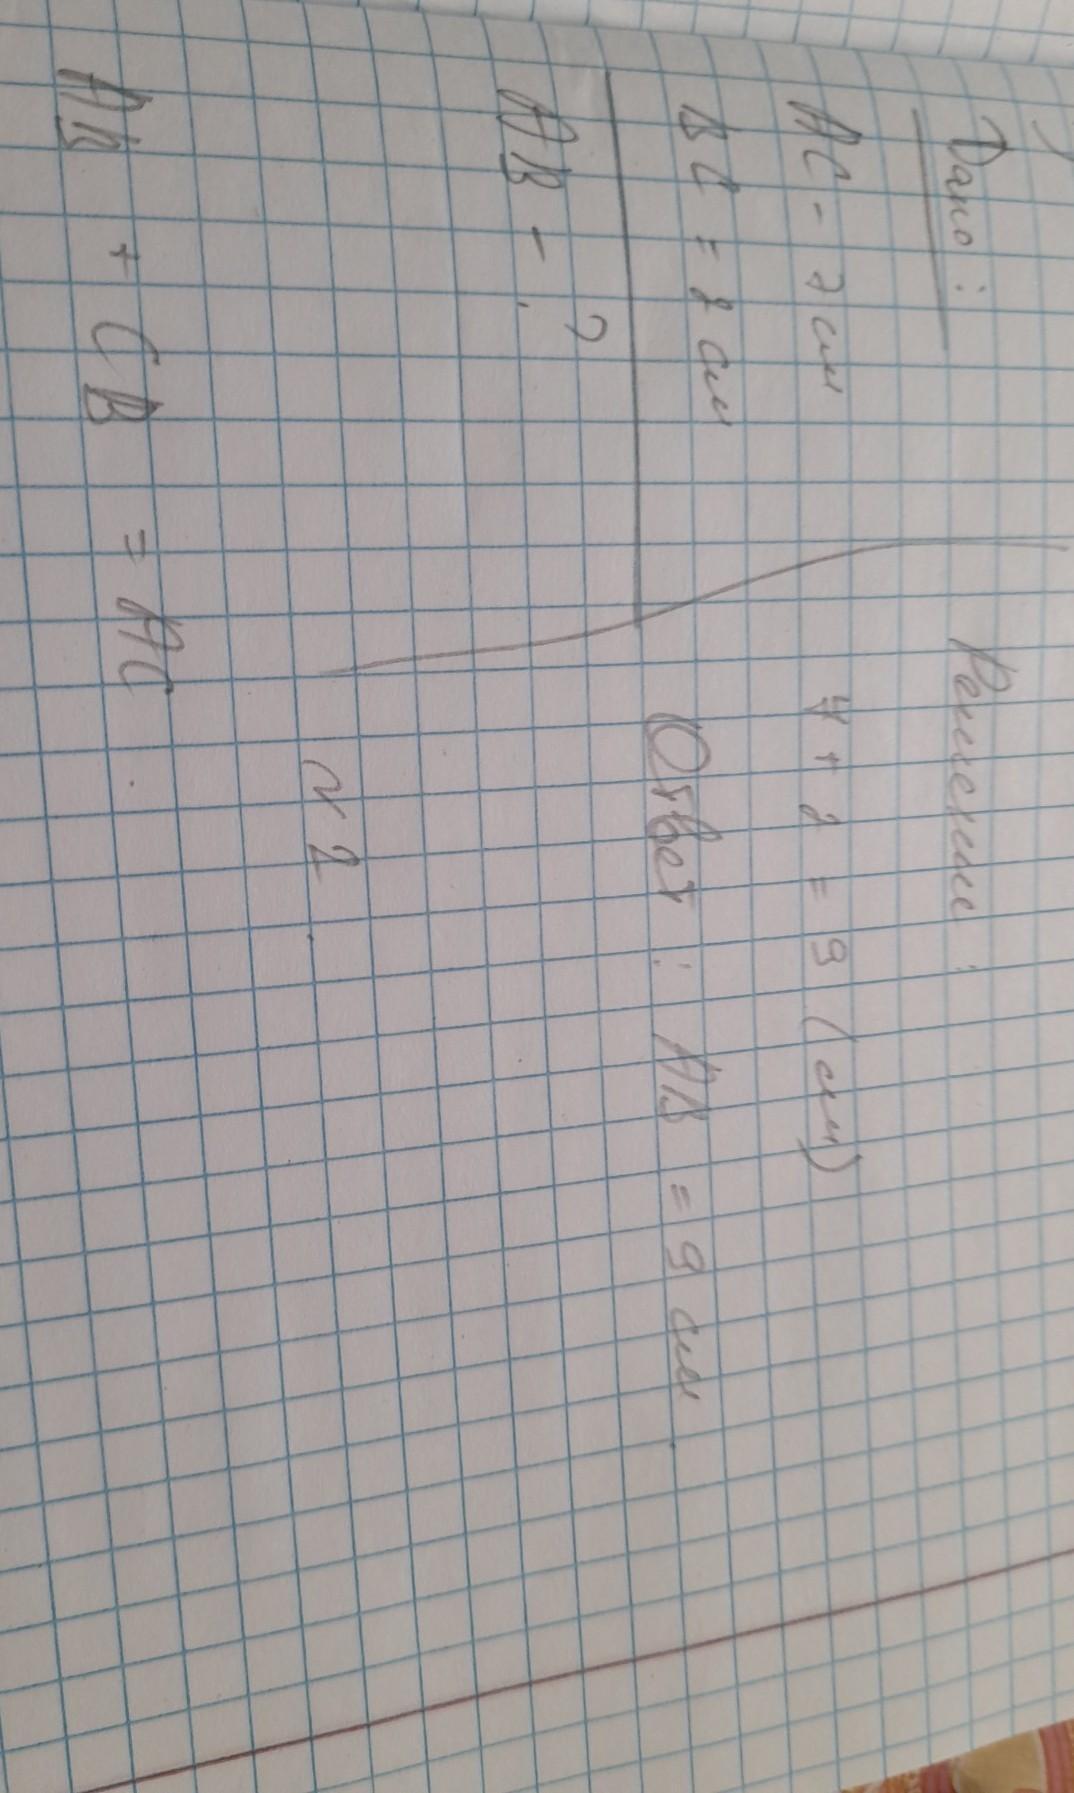 Дано:
Решение:
AC - 7 см
7 + 2 = 9 (см)
BC = 2 см
Ответ: AB = 9 см
AB - ?
№ 2
AB + CB = AC